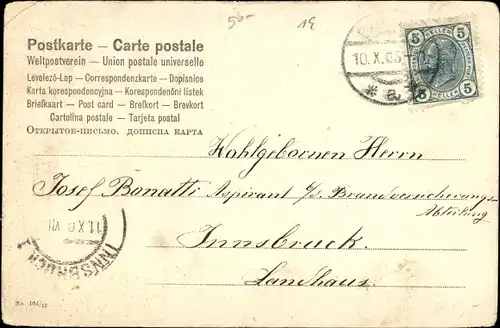 50- 19
Postkarte — Carte postale
Weltpostverein — Union postale universelle
Levelező-Lap — Correspondenzkarte — Dopisnice
Karta korespondencyjna — Korespondenční lístek
Briefkaart — Post card — Brefkort — Brevkort
Cartolina postale — Tarjeta postal
Открытое-письмо. Дописна карта
5 5
HELLER
5 5
10.X.05
* a.
Wohlgebornen Herrn
Josef Bonatti Aspirant Brandversicherungs-
Abteilung
Innsbruck.
Landhaus.
11.X.0 VII
INNSBRUCK 1